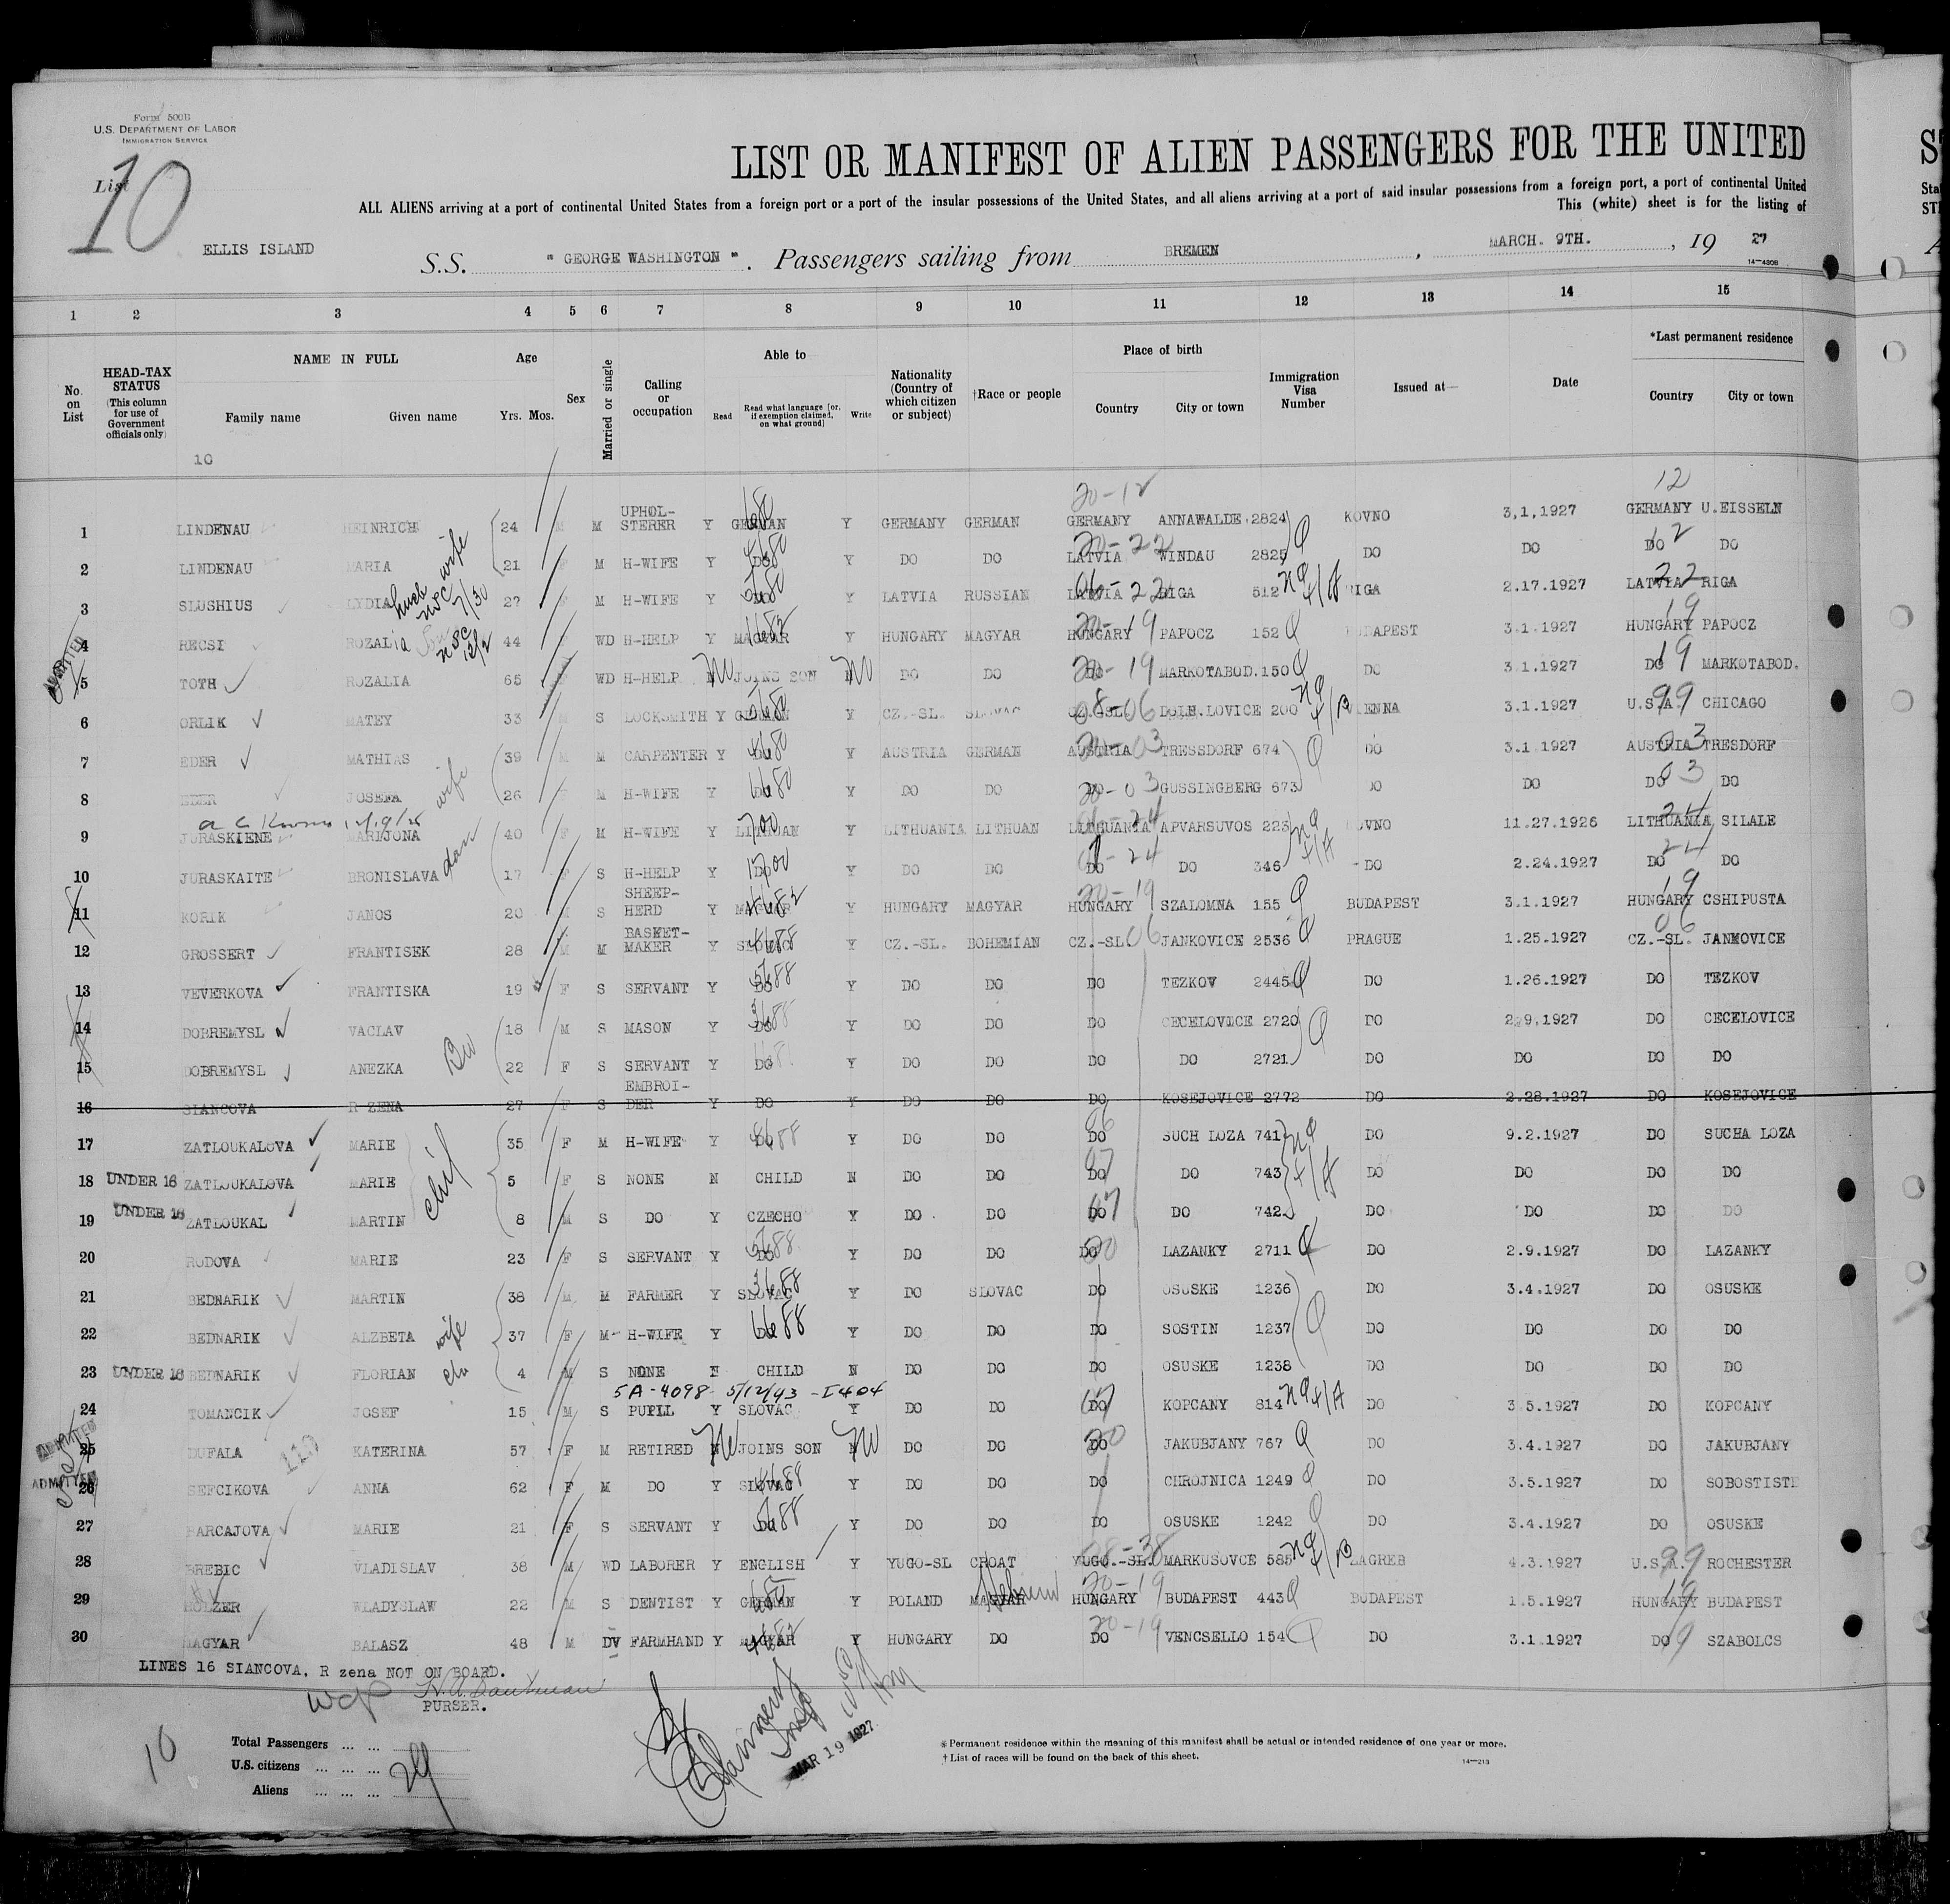 Form 500B
U.S. DEPARTMENT OF LABOR
IMMIGRATION SERVICE
List 10
LIST OR MANIFEST OF ALIEN PASSENGERS FOR THE UNITED
ALL ALIENS arriving at a port of continental United States from a foreign port or a port of the insular possessions of the United States, and all aliens arriving at a port of said insular possessions from a foreign port, a port of continental United
This (white) sheet is for the listing of
ELLIS ISLAND S.S. " GEORGE WASHINGTON ". Passengers sailing from BREMEN, MARCH. 9TH., 19 27
14-430B
1 2 3 4 5 6 7 8 9 10 11 12 13 14 15
No. on List
HEAD-TAX STATUS (This column for use of Government officials only)
NAME IN FULL Family name Given name
Age Yrs. Mos.
Sex
Married or single
Calling or occupation
Able to Read Read what language [or, if exemption claimed, on what ground] Write
Nationality (Country of which citizen or subject)
†Race or people
Place of birth Country City or town
Immigration Visa Number
Issued at—
Date
*Last permanent residence Country City or town
10
20-12 12
1 LINDENAU HEINRICH 24 M UPHOL-STERER Y GERMAN Y GERMANY GERMAN GERMANY ANNAWALDE 2824 KOVNO 3,1,1927 GERMANY U.EISSELN
2 LINDENAU MARIA wife 21 F M H-WIFE Y DO Y DO DO LATVIA WINDAU 2825 DO DO DO DO
3 SLUSHIUS LYDIA 27 F M H-WIFE Y DO Y LATVIA RUSSIAN LATVIA RIGA 512 RIGA 2.17.1927 LATVIA RIGA
4 RECSI ROZALIA 44 F WD H-HELP Y MAGYAR Y HUNGARY MAGYAR HUNGARY PAPOCZ 152 BUDAPEST 3.1.1927 HUNGARY PAPOCZ
5 TOTH ROZALIA 65 WD H-HELP No JOINS SON No DO DO DO MARKOTABOD. 150 DO 3.1.1927 DO MARKOTABOD.
6 ORLIK MATEY 33 M S LOCKSMITH Y GERMAN Y CZ.-SL. SLOVAC CZ.-SL. DOLH.LOVICE 200 VIENNA 3.1.1927 U.S.A. CHICAGO
7 EDER MATHIAS 39 M M CARPENTER Y DO Y AUSTRIA GERMAN AUSTRIA TRESSDORF 674 DO 3.1.1927 AUSTRIA TRESDORF
8 EDER JOSEFA wife 26 F M H-WIFE Y DO Y DO DO GUSSINGBERG 673 DO DO DO DO
9 JURASKIENE MARIJONA 40 F M H-WIFE Y LITHUAN Y LITHUANIA LITHUAN LITHUANIA APVARSUVOS 223 KOVNO 11.27.1926 LITHUANIA SILALE
10 JURASKAITE BRONISLAVA dau 17 F S H-HELP Y DO Y DO DO DO DO 346 DO 2.24.1927 DO DO
11 KORIK JANOS 20 M S SHEEP-HERD Y MAGYAR Y HUNGARY MAGYAR HUNGARY SZALOMNA 155 BUDAPEST 3.1.1927 HUNGARY CSHIPUSTA
12 GROSSERT FRANTISEK 28 M M BASKET-MAKER Y SLOVAC Y CZ.-SL. BOHEMIAN CZ.-SL JANKOVICE 2536 PRAGUE 1.25.1927 CZ.-SL. JANKOVICE
13 VEVERKOVA FRANTISKA 19 F S SERVANT Y DO Y DO DO DO TEZKOV 2445 DO 1.26.1927 DO TEZKOV
14 DOBREMYSL VACLAV 18 M S MASON Y DO Y DO DO DO CECELOVICE 2720 DO 2.9.1927 DO CECELOVICE
15 DOBREMYSL ANEZKA 22 F S SERVANT Y DO Y DO DO DO DO 2721 DO DO DO DO
16 SIANCOVA R ZENA 27 F S EMBROI-DER Y DO Y DO DO DO KOSEJOVICE 2772 DO 2.28.1927 DO KOSEJOVICE
17 ZATLOUKALOVA MARIE 35 F M H-WIFE Y DO Y DO DO DO SUCH LOZA 741 DO 9.2.1927 DO SUCHA LOZA
18 UNDER 16 ZATLOUKALOVA MARIE 5 F S NONE N CHILD N DO DO DO DO 743 DO DO DO DO
19 UNDER 16 ZATLOUKAL MARTIN 8 M S DO Y CZECHO Y DO DO DO DO 742 DO DO DO DO
20 RODOVA MARIE 23 F S SERVANT Y DO Y DO DO DO LAZANKY 2711 DO 2.9.1927 DO LAZANKY
21 BEDNARIK MARTIN 38 M M FARMER Y SLOVAC Y DO SLOVAC DO OSUSKE 1236 DO 3.4.1927 DO OSUSKE
22 BEDNARIK ALZBETA wife 37 F M H-WIFE Y DO Y DO DO DO SOSTIN 1237 DO DO DO DO
23 UNDER 16 BEDNARIK FLORIAN 4 M S NONE N CHILD N DO DO DO OSUSKE 1238 DO DO DO DO
5A-4098 5/12/43 -I404
24 TOMANCIK JOSEF 15 M S PUPIL Y SLOVAC Y DO DO DO KOPCANY 814 DO 3.5.1927 DO KOPCANY
25 ADMITTED DUFALA KATERINA 57 F M RETIRED No JOINS SON No DO DO DO JAKUBJANY 767 DO 3.4.1927 DO JAKUBJANY
26 ADMITTED SEFCIKOVA ANNA 62 F M DO Y SLOVAC Y DO DO DO CHROJNICA 1249 DO 3.5.1927 DO SOBOSTISTE
27 BARCAJOVA MARIE 21 F S SERVANT Y DO Y DO DO DO OSUSKE 1242 DO 3.4.1927 DO OSUSKE
28 BREBIC VLADISLAV 38 M WD LABORER Y ENGLISH Y YUGO-SL CROAT YUGO.-SL. MARKUSOVCE 585 ZAGREB 4.3.1927 U.S.A. ROCHESTER
29 HOLZER WLADYSLAW 22 M S DENTIST Y GERMAN Y POLAND MAGYAR Hebrew HUNGARY BUDAPEST 443 BUDAPEST 1.5.1927 HUNGARY BUDAPEST
30 MAGYAR BALASZ 48 M DV FARMHAND Y MAGYAR Y HUNGARY DO DO VENCSELLO 154 DO 3.1.1927 DO SZABOLCS
LINES 16 SIANCOVA, R zena NOT ON BOARD.
PURSER.
10
Total Passengers ... ...
U.S. citizens ... ... ...
Aliens ... ... ...
29
MAR 19 1927
*Permanent residence within the meaning of this manifest shall be actual or intended residence of one year or more.
†List of races will be found on the back of this sheet.
14-213